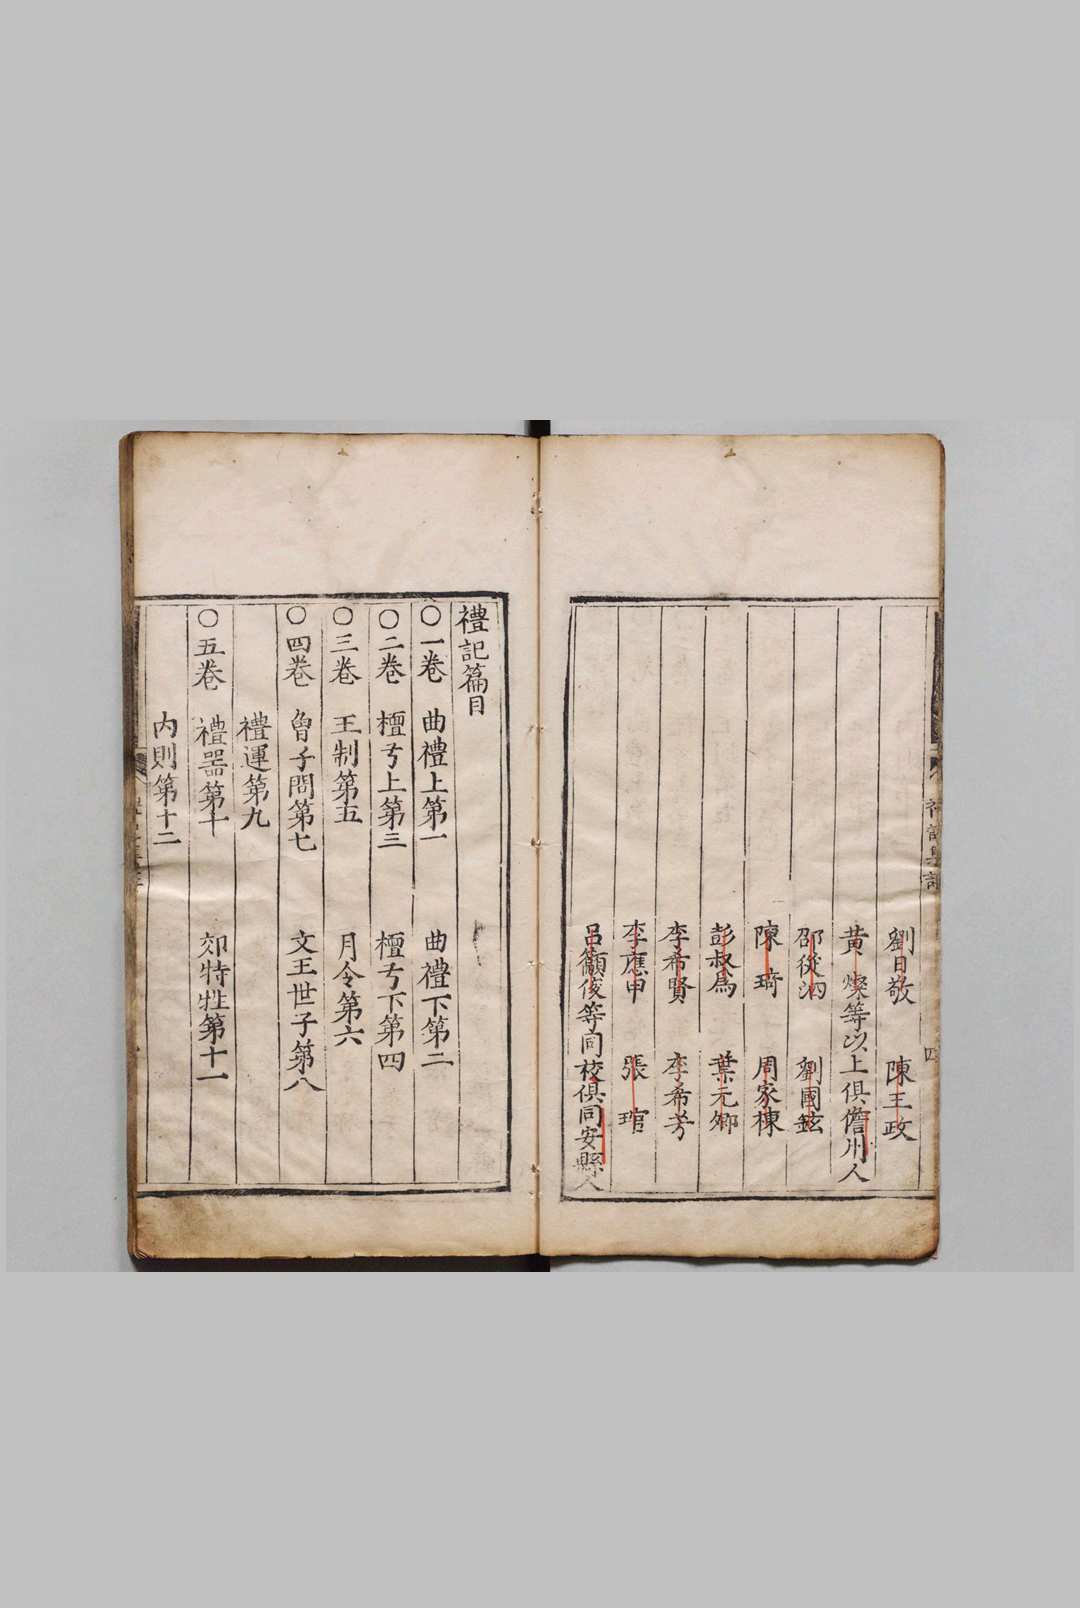 劉日敬 陳王政
黃燦等以上俱儋州人
邵從泗 劉國鉉
陳琦 周家棟
彭叔為 葉元卿
李希賢 李希芳
李應申 張琯
呂籲俊等同校俱同安縣人
四
禮記篇目
〇一卷 曲禮上第一 曲禮下第二
〇二卷 檀弓上第三 檀弓下第四
〇三卷 王制第五 月令第六
〇四卷 曾子問第七 文王世子第八
禮運第九
〇五卷 禮器第十 郊特牲第十一
內則第十二